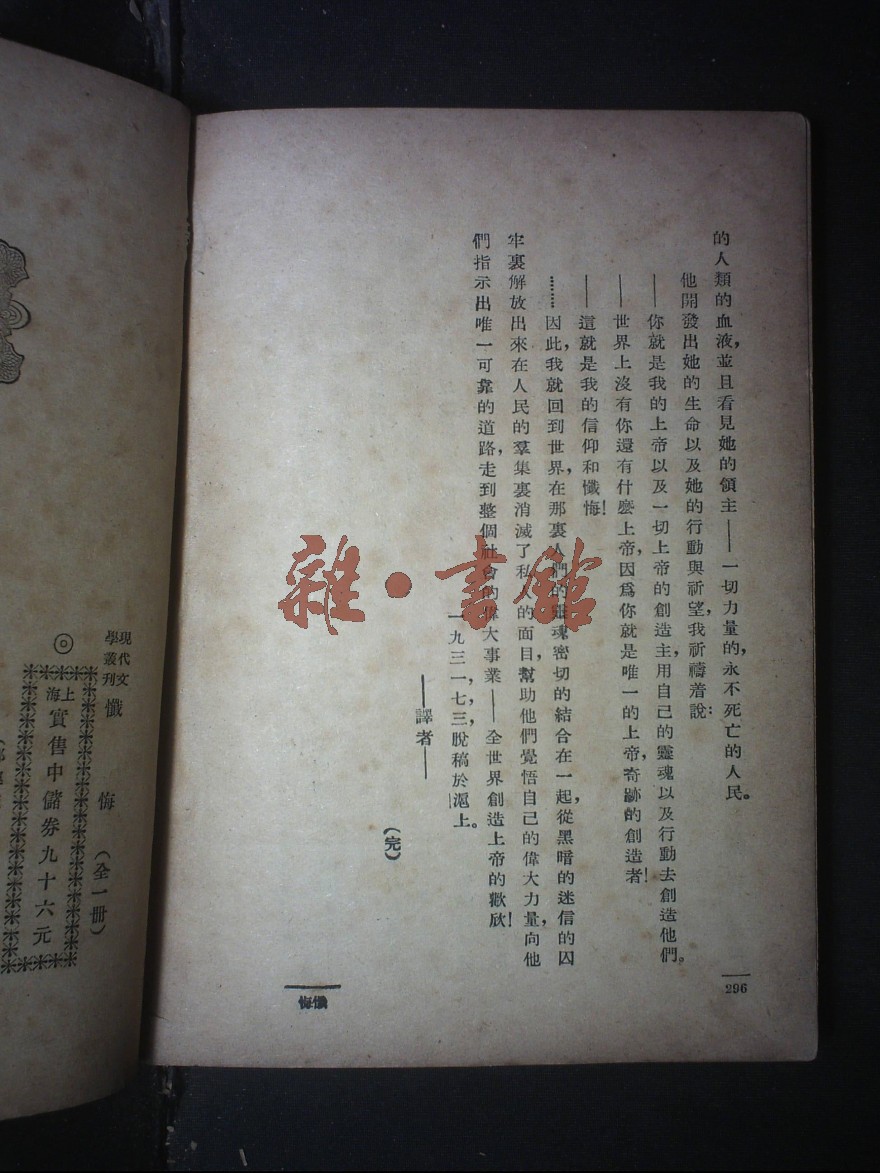 的人類的血液，並且看見她的領主——一切力量的，永不死亡的人民。
他開發出她的生命以及她的行動與祈望，我祈禱着說：
——你就是我的上帝以及一切上帝的創造主，用自己的靈魂以及行動去創造他們。
——世界上沒有你還有什麼上帝，因爲你就是唯一的上帝，奇跡的創造者！
——這就是我的信仰和懺悔！
……因此，我就回到世界，在那裏人們的靈魂密切的結合在一起，從黑暗的迷信的囚
牢裏解放出來在人民的羣集裏消滅了私人的面目，幫助他們覺悟自己的偉大力量，向他
們指示出唯一可靠的道路，走到整個社會的偉大事業——全世界創造上帝的歡欣！
一九三一，七，三，脫稿於滬上。
——譯者——
（完）
296
懺悔
雜·書館
現代文
學叢刊
懺悔（全一冊）
◎
上海
實售中儲券九十六元